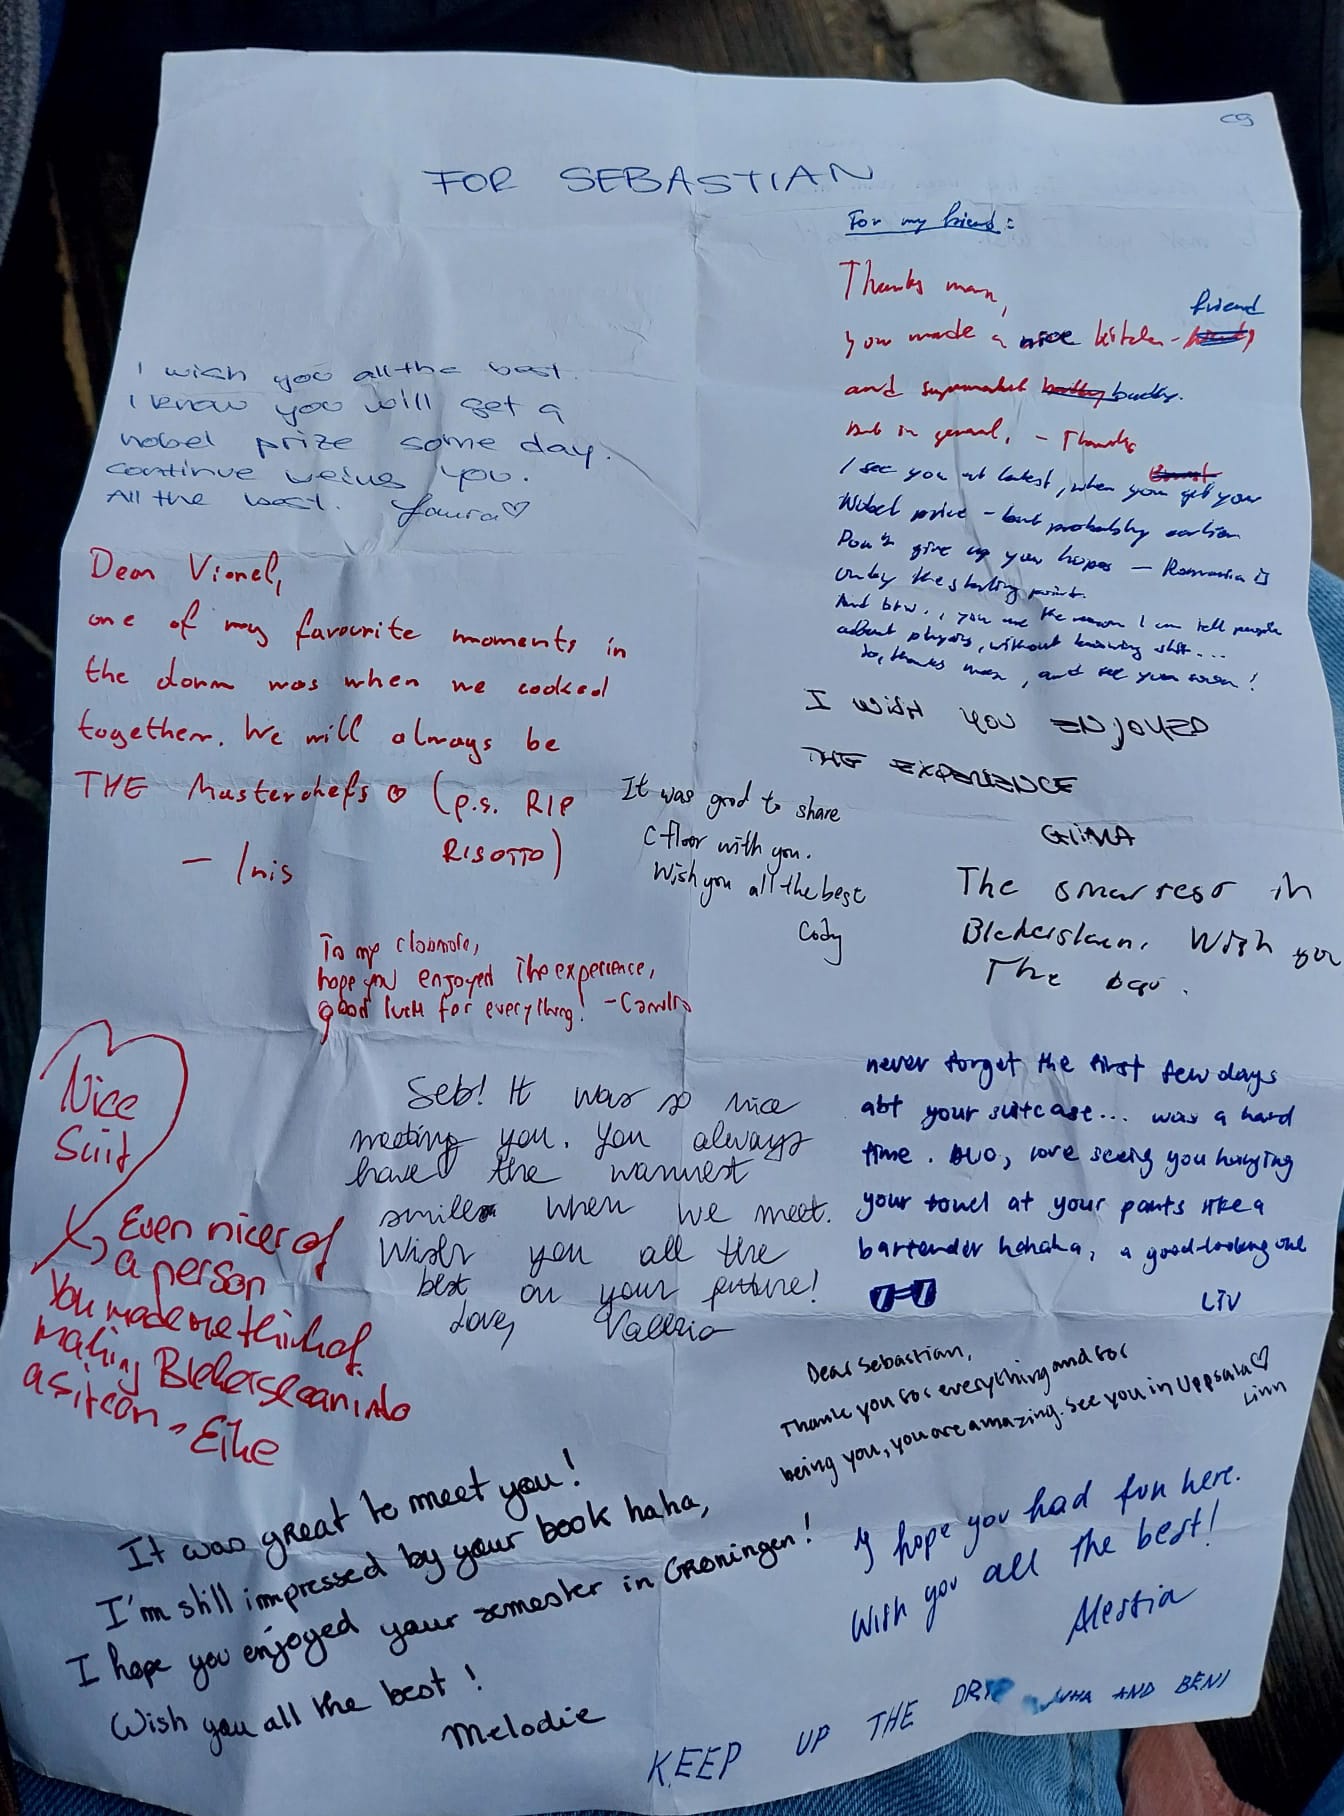 c9
FOR SEBASTIAN
For my friend:
Thanks man,
you made a nice kitchen- friend
and supermarket buddy.
But in general, - Thanks
I see you at latest, when you get your
Nobel price - but probably earlier
Don't give up your hopes - Romania is
only the starting point.
And btw., you are the reason I can tell people
about physics, without knowing shit...
So, thanks man, and see you soon!
I wish you all the best.
I know you will get a
nobel prize some day.
continue being you.
All the best. Laura♡
Dear Vionel,
one of my favourite moments in
the dorm was when we cooked
together. We will always be
THE Masterchefs ♡ (p.s. RIP
RISOTTO)
- Inis
I WISH YOU ENJOYED
THE EXPERIENCE
GHMA
It was good to share
C floor with you.
Wish you all the best
Cody
The smartest in
Wish you
The
To my
hope you enjoyed the experience,
good luck for everything! -Camilla
Nice
Suit
Even nicer of
a person
You made me think of
making into
a sitcom - Eike
Seb! It was so nice
meeting you. You always
have the warmest
smile when we meet.
Wish you all the
best on your future!
Love, Valeria
never forget the first few days
abt your suitcase... was a hard
time. love seeing you hanging
your towel at your pants like a
bartender hahaha, a good-looking one
LIV
Dear Sebastian,
Thank you for everything and for
being you, you are amazing. See you in Uppsala♡
Linn
It was great to meet you!
I'm still impressed by your book haha,
I hope you enjoyed your semester in Groningen!
Wish you all the best!
Melodie
I hope you had fun here.
Wish you all the best!
Alessia
KEEP UP THE DRIP AND BENI